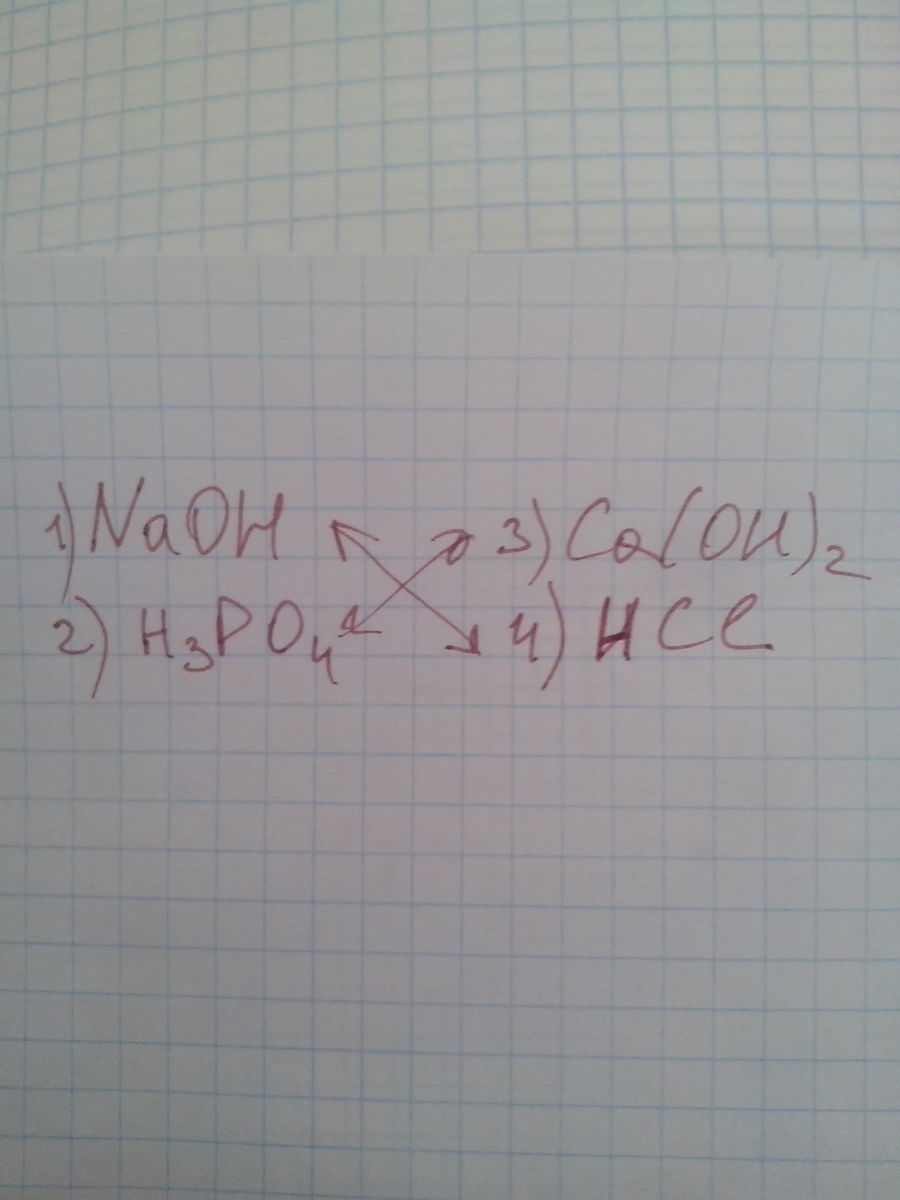 1) NaOH 3) Ca(OH)₂
2) H₃PO₄ 4) HCl